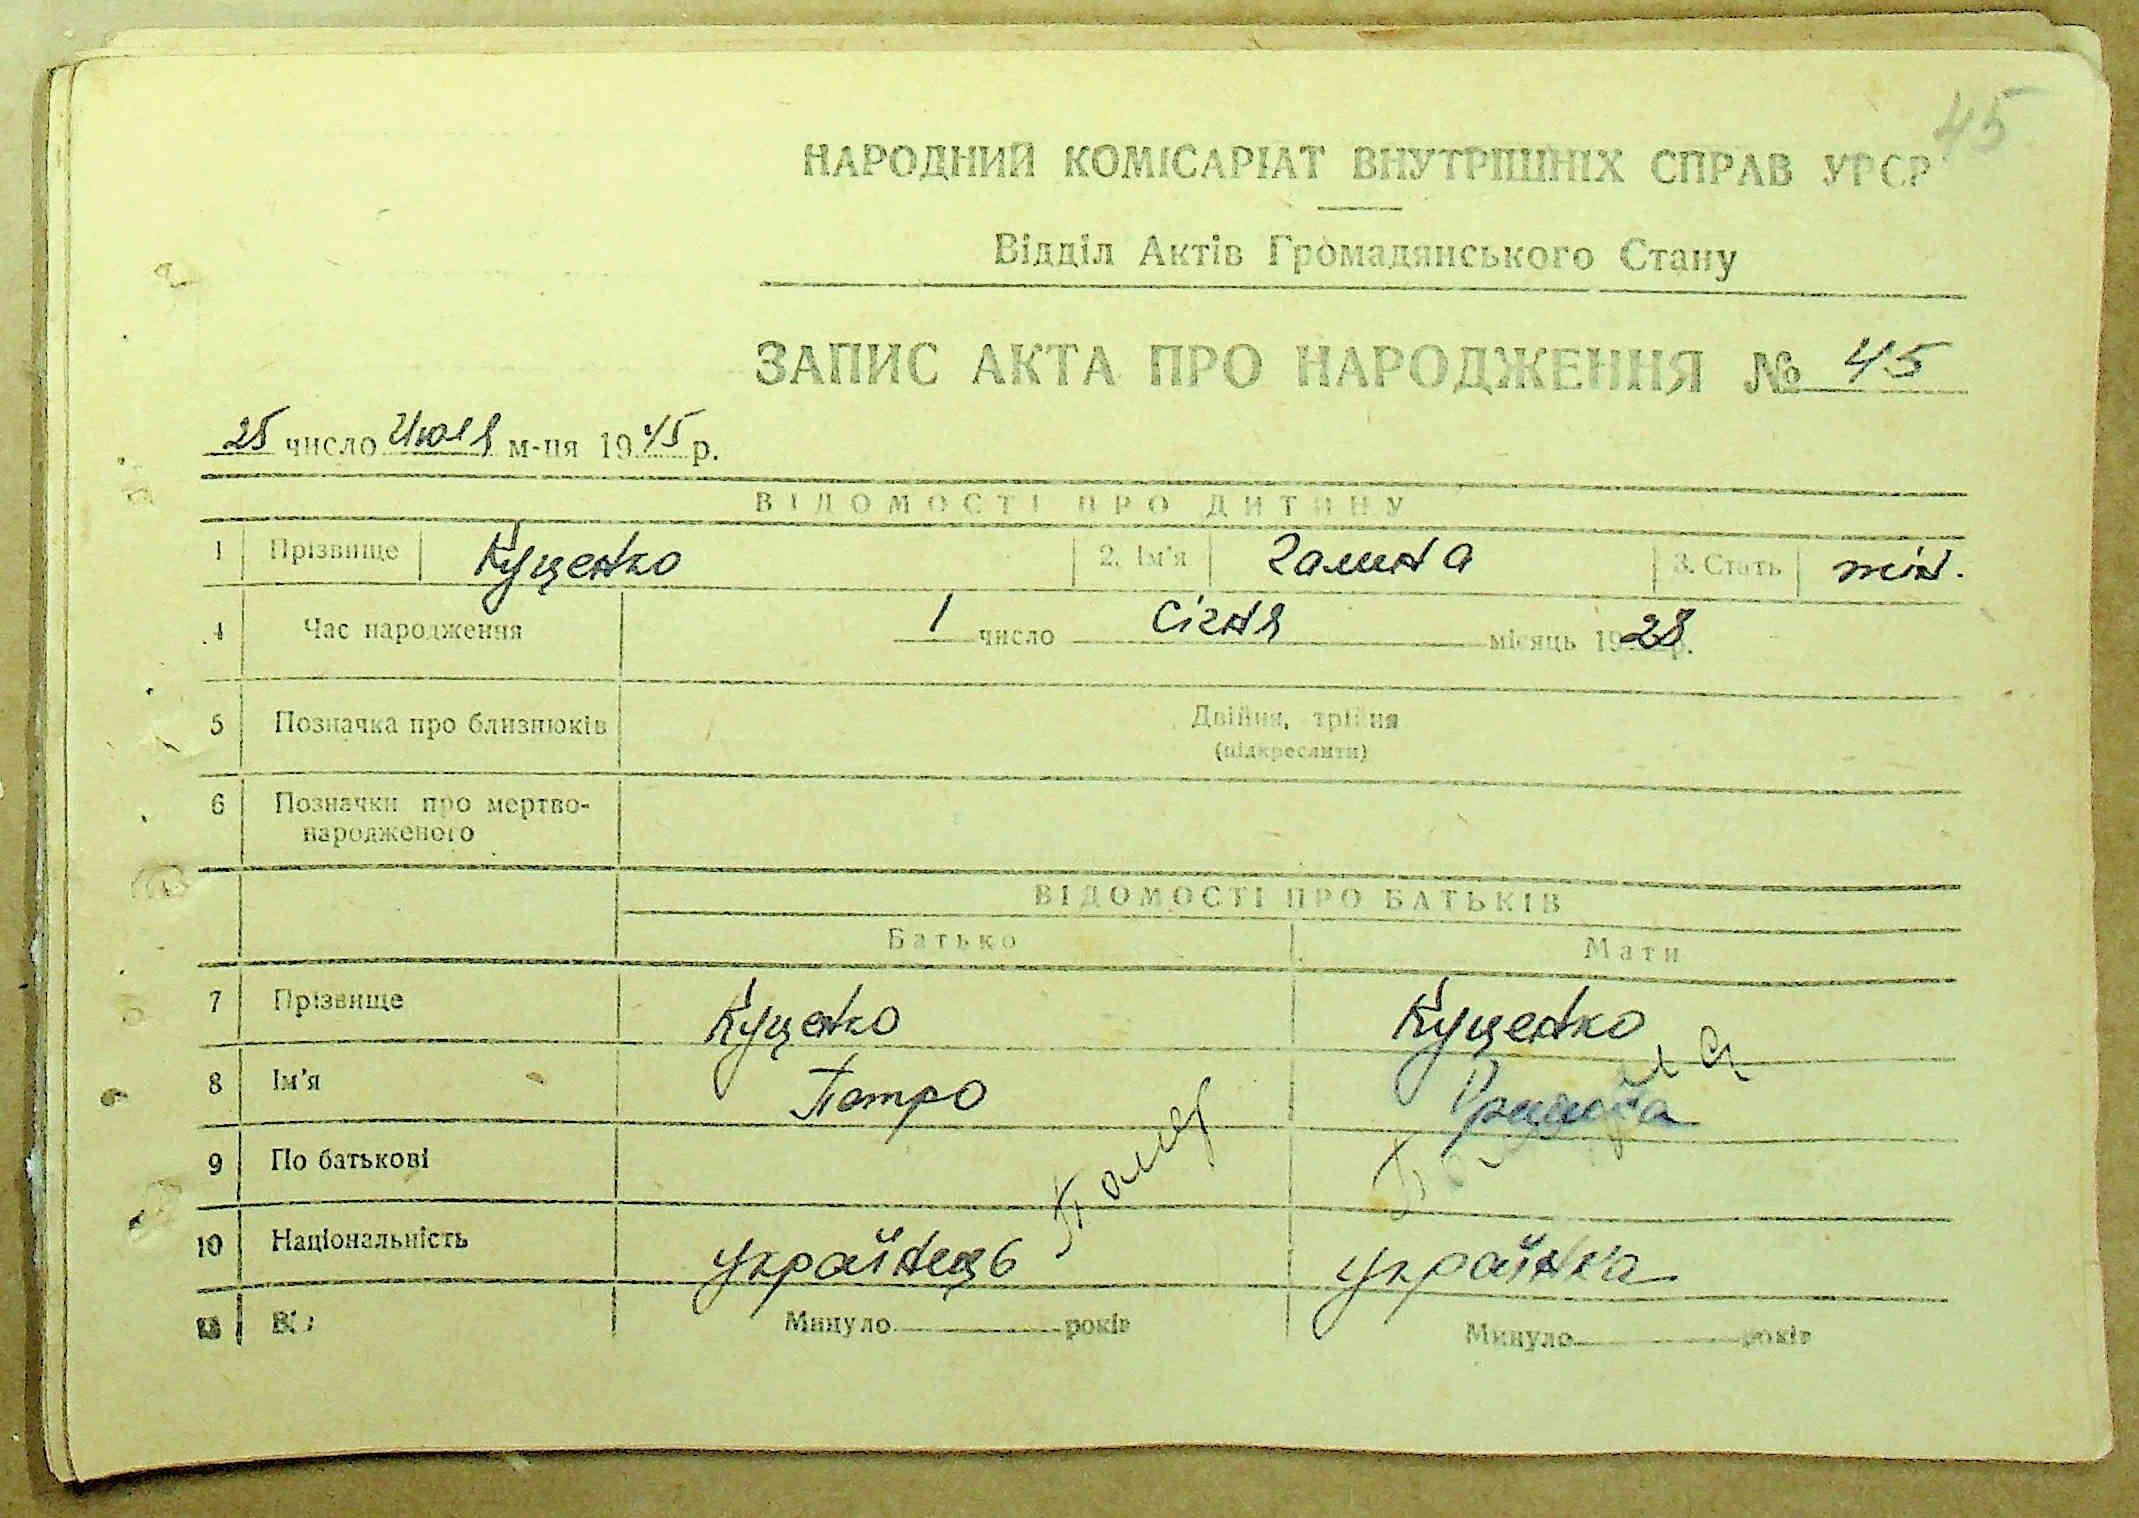 45
НАРОДНИЙ КОМІСАРІАТ ВНУТРІШНІХ СПРАВ УРСР
Відділ Актів Громадянського Стану
ЗАПИС АКТА ПРО НАРОДЖЕННЯ № 45
25 число Июля м-ця 1945 р.
ВІДОМОСТІ ПРО ДИТИНУ
1 Прізвище Куценко 2. Ім'я Галина 3. Стать жін.
4 Час народження 1 число Січня місяць 1928 р.
5 Позначка про близнюків Двійня, трійня
(підкреслити)
6 Позначки про мертво-
народженого
ВІДОМОСТІ ПРО БАТЬКІВ
Батько Мати
7 Прізвище Куценко Куценко
8 Ім'я Петро
9 По батькові
10 Національність українець українка
Минуло років Минуло років